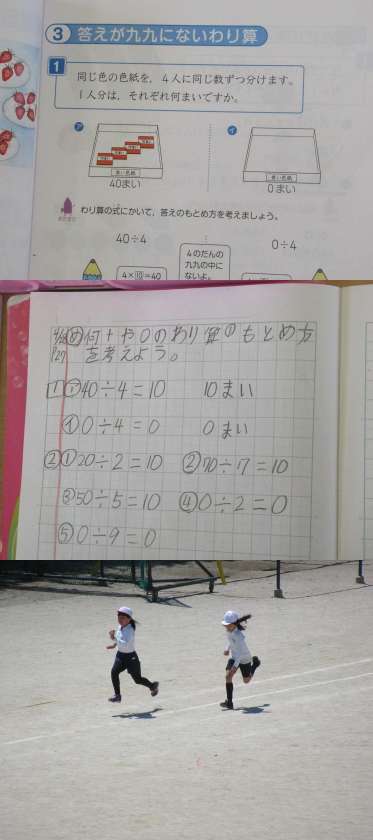 3 答えが九九にないわり算
1
同じ色の色紙を、4人に同じ数ずつ分けます。
1人分は、それぞれ何まいですか。
ア
イ
40まい
0まい
わり算の式にかいて、答えのもとめ方を考えましょう。
40÷4
0÷4
4のだんの
九九の中に
ないよ。
4×10=40
め 何十や0のわり算のもとめ方
P27 を考えよう。
1 ア 40÷4=10 10まい
イ 0÷4=0 0まい
② ① 20÷2=10 ② 70÷7=10
③ 50÷5=10 ④ 0÷2=0
⑤ 0÷9=0